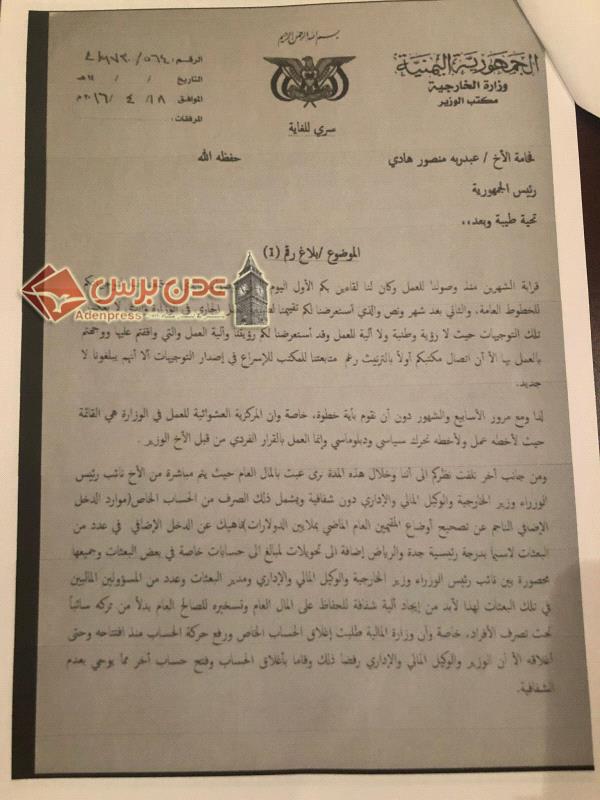 بسم الله الرحمن الرحيم
الجمهورية اليمنية
وزارة الخارجية
مكتب الوزير
الرقم:
التاريخ / / ١٤هـ
الموافق ١٨/ ٤ /٢٠١٦م
المرفقات:
سري للغاية
فخامة الأخ / عبدربه منصور هادي حفظه الله
رئيس الجمهورية
تحية طيبة وبعد،،
الموضوع /بلاغ رقم (1)
عدن برس
Adenpress
قرابة الشهرين منذ وصولنا للعمل وكان لنا لقاءين بكم الأول اليوم
للخطوط العامة، والثاني بعد شهر ونص والذي أستعرضنا لكم تقييمنا الجاري في الوزارة
تلك التوجيهات حيث لا رؤية وطنية ولا آلية للعمل وقد أستعرضنا لكم رؤيتنا وآلية العمل والتي وافقتم عليها ووجهتم
بالعمل بها الأ أن اتصال مكتبكم أولاً بالتريث رغم متابعتنا للمكتب للإسراع في إصدار التوجيهات ألا أنهم يبلغونا لا
جديد.
لذا ومع مرور الأسابيع والشهور دون أن نقوم بأية خطوة، خاصة وان المركزية العشوائية للعمل في الوزارة هي القائمة
حيث لأخطه عمل ولأخطه تحرك سياسي ودبلوماسي وإنما العمل بالقرار الفردي من قبل الأخ الوزير .
ومن جانب أخر نلفت نظركم الى أننا وخلال هذه المدة نرى عبث بالمال العام حيث يتم مباشرة من الأخ نائب رئيس
الوزراء وزير الخارجية والوكيل المالي والإداري دون شفافية ويشمل ذلك الصرف من الحساب الخاص(موارد الدخل
الإضافي الناجم عن تصحيح أوضاع المقيمين العام الماضي بملايين الدولارات)ناهيك عن الدخل الإضافي في عدد من
البعثات لاسيما بدرجة رئيسية جدة والرياض إضافة الى تحويلات لمبالغ الى حسابات خاصة في بعض البعثات وجميعها
محصورة بين نائب رئيس الوزراء وزير الخارجية والوكيل المالي والإداري ومدير البعثات وعدد من المسؤولين الماليين
في تلك البعثات لهذا لأبد من إيجاد آلية شفافة للحفاظ على المال العام وتسخيره للصالح العام بدلاً من تركه سائباً
تحت تصرف الأفراد، خاصة وأن وزارة المالية طلبت إغلاق الحساب الخاص ورفع حركة الحساب منذ افتتاحه وحتى
أغلاقه الأ أن الوزير والوكيل المالي والإداري رفضا ذلك وقاما بأغلاق الحساب وفتح حساب أخر مما يوحي بعدم
الشفافية.